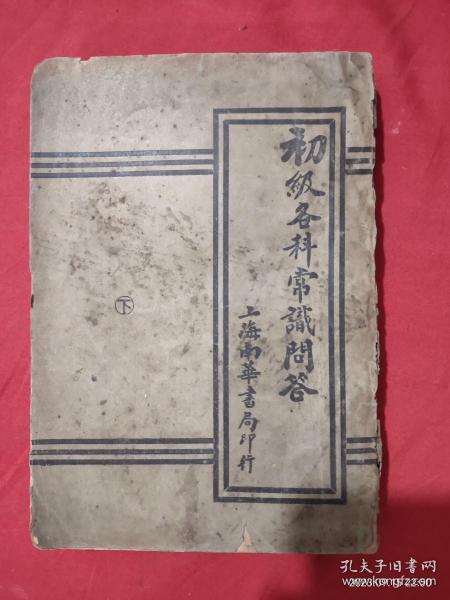 初級各科常識問答
上海南華書局印行
下
孔夫子旧书网
www.kongfz.com